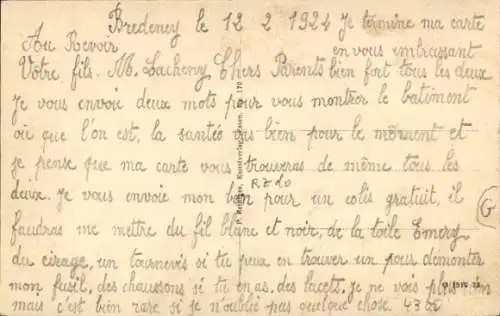 Bredeney le 12 2 1924 Je termine ma carte
Au Revoir en vous embrassant
Votre fils. M. Lacheny Chers Parents bien fort tous les deux
Je vous envoie deux mots pour vous montrer le batiment
où que l'on est, la santée vas bien pour le moment et
je pense que ma carte vous trouveras de même tous les
deux. Je vous envoie mon bon pour un colis gratuit, il
faudras me mettre du fil blanc et noir, de la toile Emery
du cirage, un tournevis si tu peux en trouver un pour démonter
mon fusil, des chaussons si tu en as, des lacets. Je ne vois plus rien
mais c'est bien rare si je n'oublie pas quelque chose.
G
Kunstverlag, Essen. 170